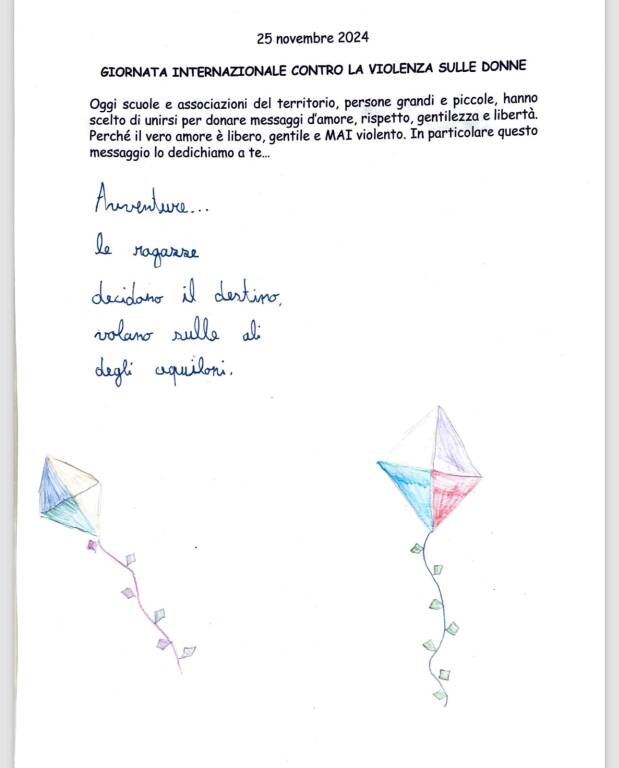 25 novembre 2024
GIORNATA INTERNAZIONALE CONTRO LA VIOLENZA SULLE DONNE
Oggi scuole e associazioni del territorio, persone grandi e piccole, hanno
scelto di unirsi per donare messaggi d'amore, rispetto, gentilezza e libertà.
Perché il vero amore è libero, gentile e MAI violento. In particolare questo
messaggio lo dedichiamo a te...
Avventure...
le ragazze
decidono il destino,
volano sulle ali
degli aquiloni.